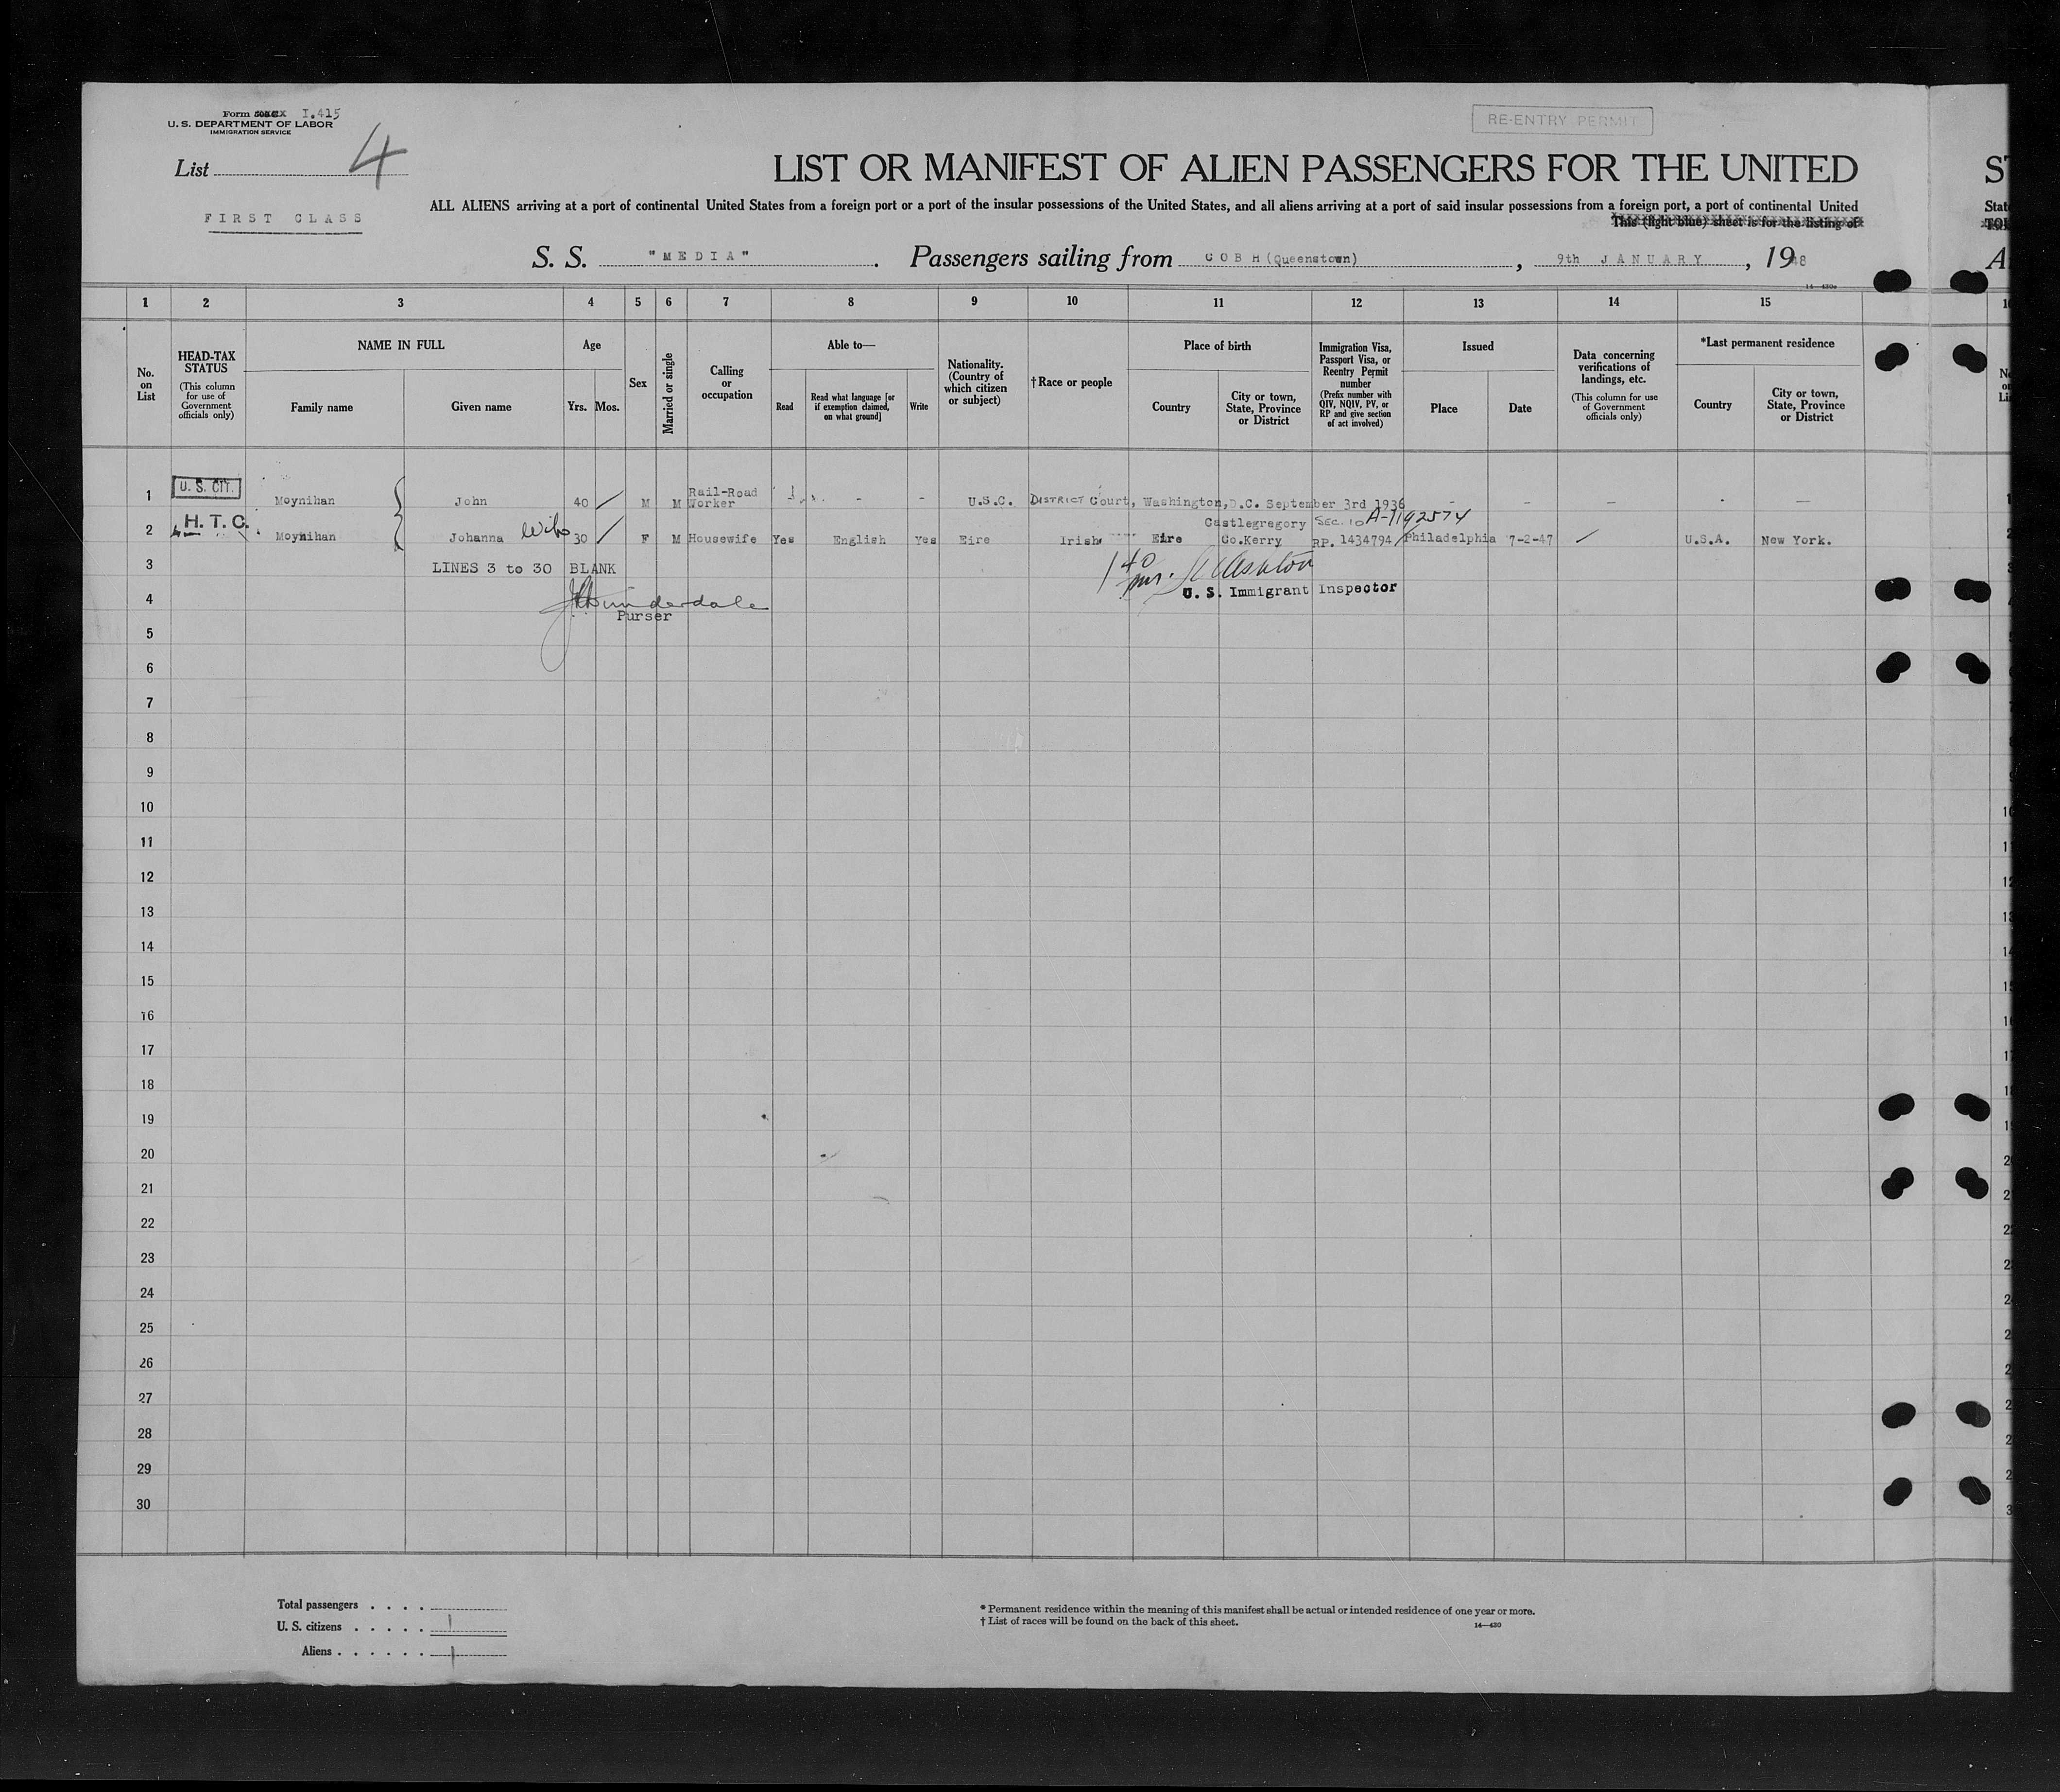 Form I.415
U. S. DEPARTMENT OF LABOR
IMMIGRATION SERVICE
RE-ENTRY PERMIT
List 4
LIST OR MANIFEST OF ALIEN PASSENGERS FOR THE UNITED
FIRST CLASS
ALL ALIENS arriving at a port of continental United States from a foreign port or a port of the insular possessions of the United States, and all aliens arriving at a port of said insular possessions from a foreign port, a port of continental United
This (light blue) sheet is for the listing of
S. S. "MEDIA". Passengers sailing from COBH (Queenstown), 9th JANUARY, 1948
14—430a
1 2 3 4 5 6 7 8 9 10 11 12 13 14 15
No. on List
HEAD-TAX STATUS (This column for use of Government officials only)
NAME IN FULL
Family name
Given name
Age
Yrs.
Mos.
Sex
Married or single
Calling or occupation
Able to—
Read
Read what language [or if exemption claimed, on what ground]
Write
Nationality. (Country of which citizen or subject)
†Race or people
Place of birth
Country
City or town, State, Province or District
Immigration Visa, Passport Visa, or Reentry Permit number (Prefix number with QIV, NQIV, PV, or RP and give section of act involved)
Issued
Place
Date
Data concerning verifications of landings, etc. (This column for use of Government officials only)
*Last permanent residence
Country
City or town, State, Province or District
1 U. S. CIT. Moynihan John 40 M M Rail-Road Worker - - U.S.C. DISTRICT Court, Washington, D.C. September 3rd 1936 - - - . -
2 H. T. C. Moynihan Johanna Wife 30 F M Housewife Yes English Yes Eire Irish Eire Castlegregory Co.Kerry SEC. 10 A-1192574 RP. 1434794 Philadelphia 7-2-47 U.S.A. New York.
3 LINES 3 to 30 BLANK
Ashton
4 U. S. Immigrant Inspector
Purser
5
6
7
8
9
10
11
12
13
14
15
16
17
18
19
20
21
22
23
24
25
26
27
28
29
30
Total passengers . . . .
U. S. citizens . . . . . 1
Aliens . . . . . . 1
* Permanent residence within the meaning of this manifest shall be actual or intended residence of one year or more.
† List of races will be found on the back of this sheet.
14—430